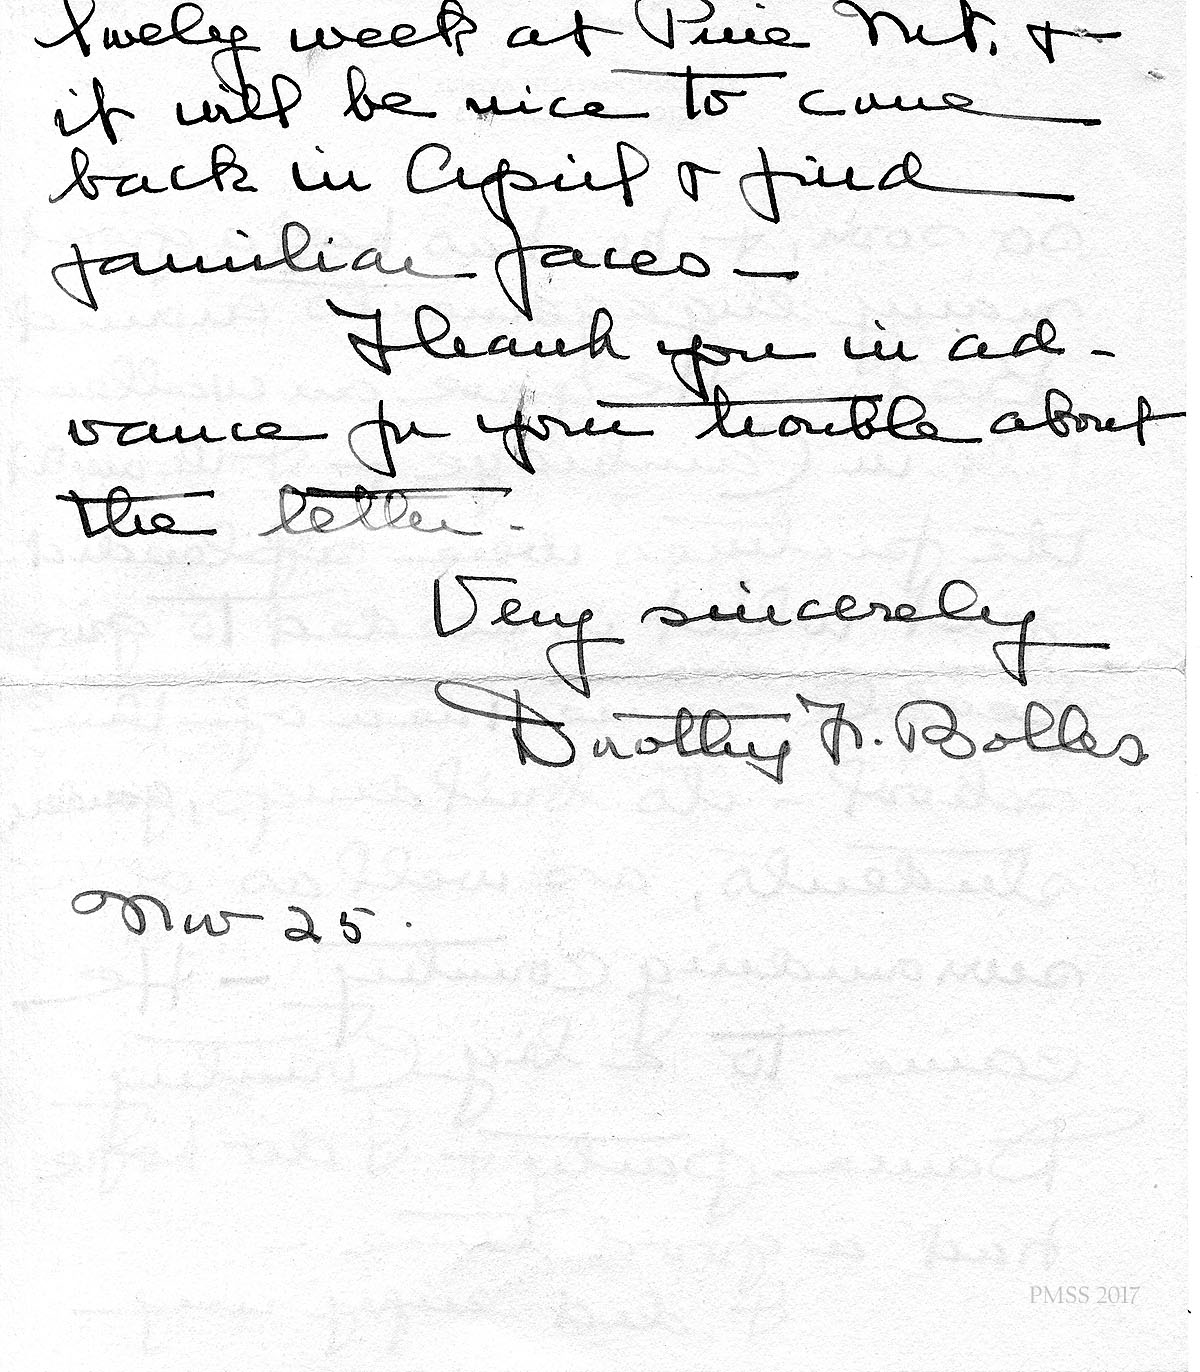 lovely week at Pine Mt. &
it will be nice to come
back in April & find
familiar faces —
Thank you in ad-
vance for your trouble about
the letter.
Very sincerely
Dorothy F. Bolles
Nov 25.
PMSS 2017